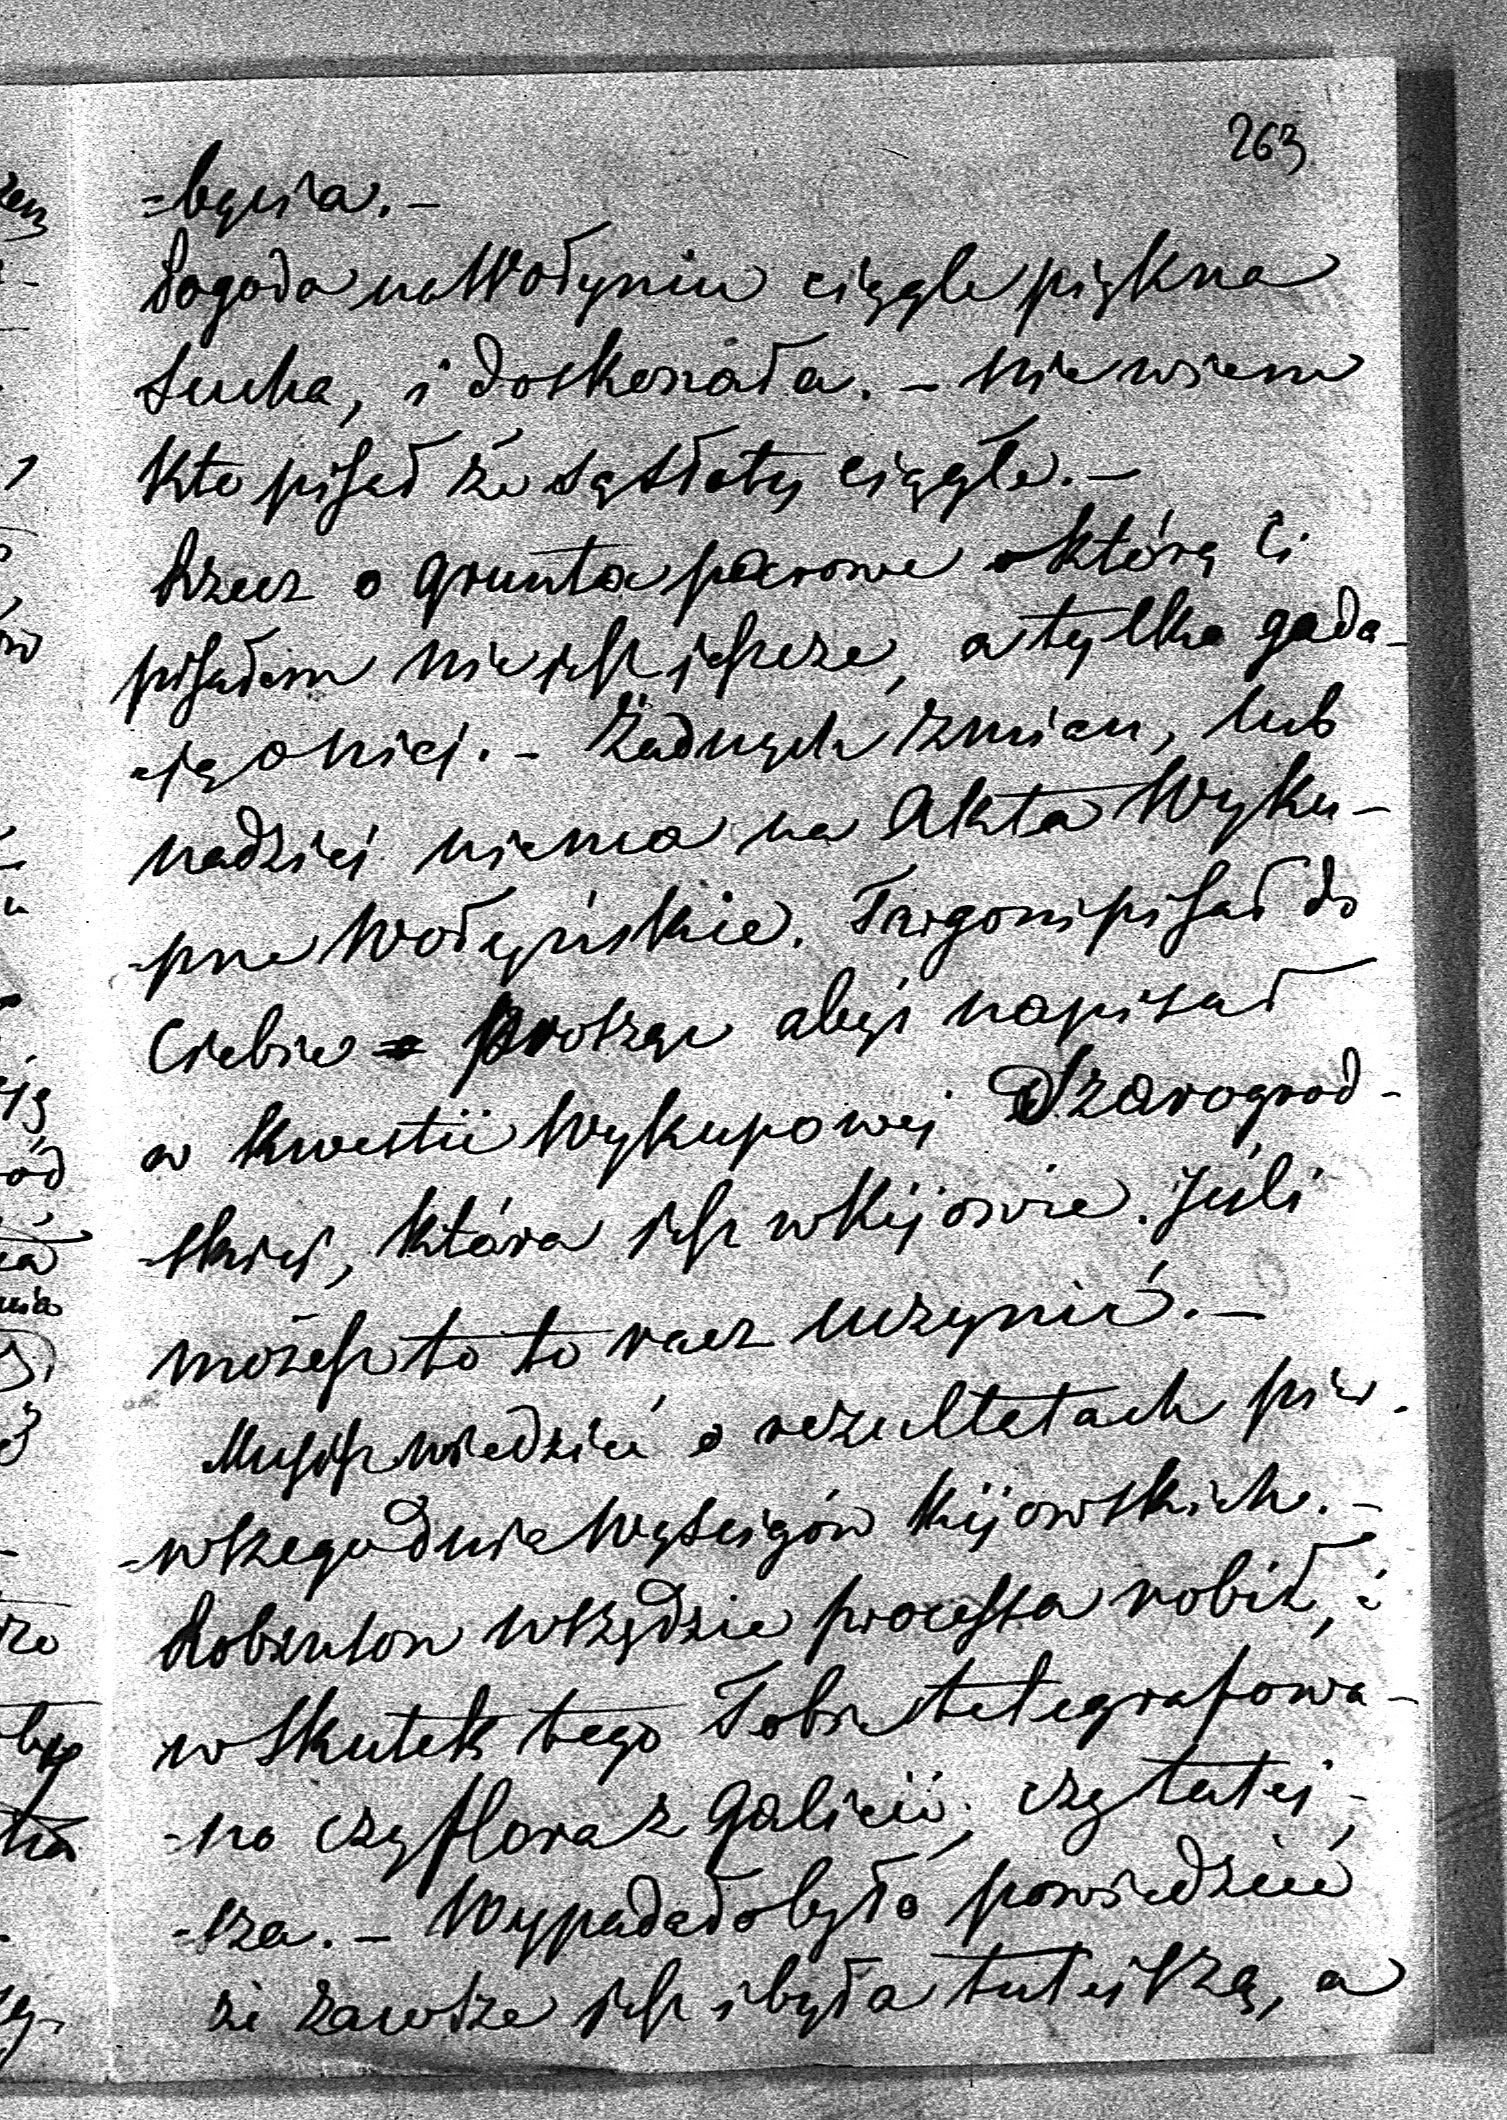 263
=bycia. –
Pogoda na Wołyniu ciągle piękna
sucha, i doskonała. – nie wiem
kto pisał że są słoty ciągle. –
Rzecz o grunta parowe o którą Ci
pisałem nie jest jeszcze, a tylko gada-
-ją o niej. – Żadnych zmian, lub
nadziei niema na Akta Wyku-
-pne Wołyńskie. Targoni pisał do
Ciebie prosząc abyś napisał
w kwestii Wykupowej Szarogrod-
-skiej, która jest w Kijowie. Jeśli
możesz to to racz uczynić. –
Musisz wiedzieć o rezultatach pier-
-wszego dnia Wyścigów Kijowskich. –
Robenson wszędzie processa robił, i
w skutek tego Tobie telegrafowa-
-no czy flora z Galicii, czy tutej-
-sza. – Wypadało było powiedzieć
że zawsze jest i była tutejszą, a